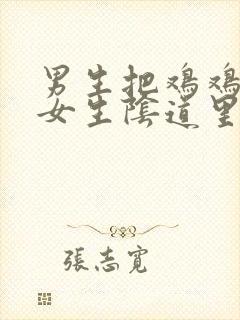 男生把鸡鸡
女生陰道里
張志寬